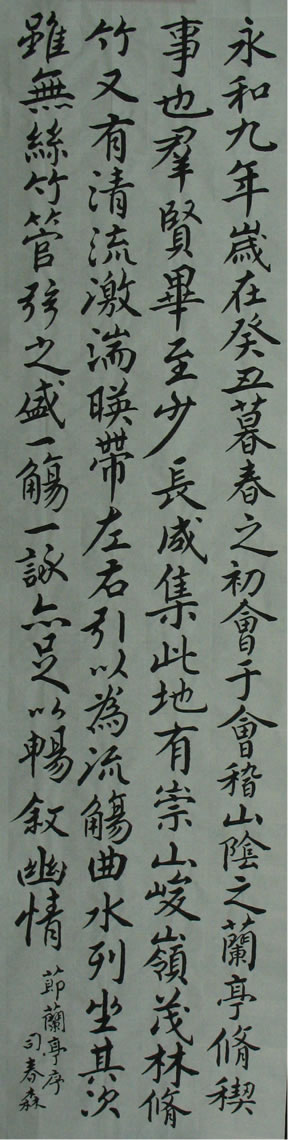 永和九年歲在癸丑暮春之初會于會稽山陰之蘭亭脩稧
事也羣賢畢至少長咸集此地有崇山峻嶺茂林脩
竹又有清流激湍暎帶左右引以為流觴曲水列坐其次
雖無絲竹管弦之盛一觴一詠亦足以暢叙幽情
節蘭亭序
司春森